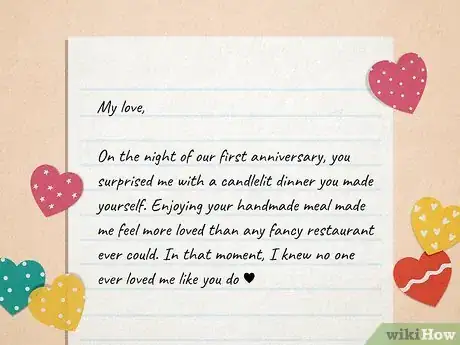 My love,
On the night of our first anniversary, you
surprised me with a candlelit dinner you made
yourself. Enjoying your handmade meal made
me feel more loved than any fancy restaurant
ever could. In that moment, I knew no one
ever loved me like you do ♥
wikiHow